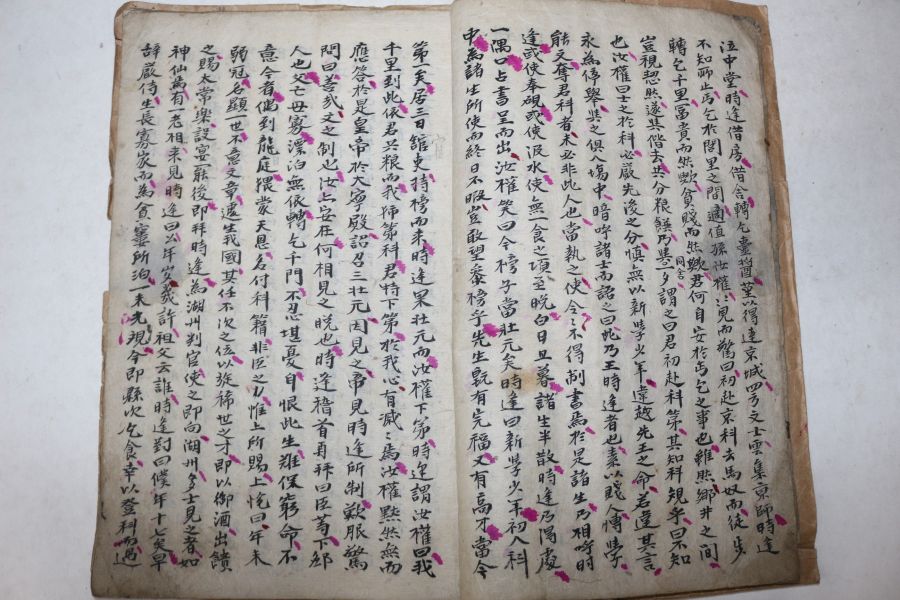 泣中堂時逢借房借舍轉乞臺醬菫以得達京城四方文士雲集京師時逢
不知所止丐乞於閭里之間適值孫汝權汝權見而驚曰初赴京科去馬奴而徒步
轉乞千里富貴而然歟貧賤而然歟君何自安於丐乞之事也雖然鄉井之間
豈視恝然遂其偕去共分粮饌乃與多謂之曰君初赴科第其知科規乎曰不知
同舍
也汝權曰士之於科必嚴先後之分慎無以新學少年違越先王之命若違其言
永為停舉與之俱入場中暗呼諸士而語之曰此乃王時逢者也素以賤人博學
能文奪君科者未必非此人也當執之使令之不得制書焉於是諸生乃相呼時
逢或使奉硯或使汲水使無一食之頃至晚白日且暮諸生半散時逢乃隅處
一隅口占書呈而出汝權笑曰今榜子當壯元矣時逢曰新學少年初入科
中為諸生所使而終日不暇豈敢望參榜乎先生既有完福又有高才當今
第一矣居三日館吏持榜而來時逢果壯元而汝權下第時逢謂汝權曰我
千里到此依君共粮而我得第科君特下第於我心有減之焉汝權黙然無而
應答於是皇帝於大寧殿詔召三壯元因見之帝見時逢所制歎服驚
問曰若此文之制也汝今安在何相見之晚也時逢稽首再拜曰臣荅下邳
人也父亡母寡漂泊無依轉乞千門不忍堪憂自恨此生難保窮命不
意今者偶到龍庭猥蒙天恩名付科籍非臣之力惟上所賜上悅曰年未
弱冠名顯一世不意文章處生我國其任不次之位以旌稀世之才即以御酒出饋
之賜太常樂設宴罷後即拜時逢為湖州判官使之即向湖州多士見之者如
神仙焉有一老相來見時逢曰公年歲幾許祖父云誰時逢對曰僕年十七矣早
辭嚴侍生長寡家而為貧窶所泊一未光現今即縣次乞食幸以登科而過